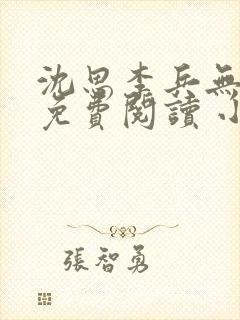 沈思李兵無
免費閱讀小
張智勇